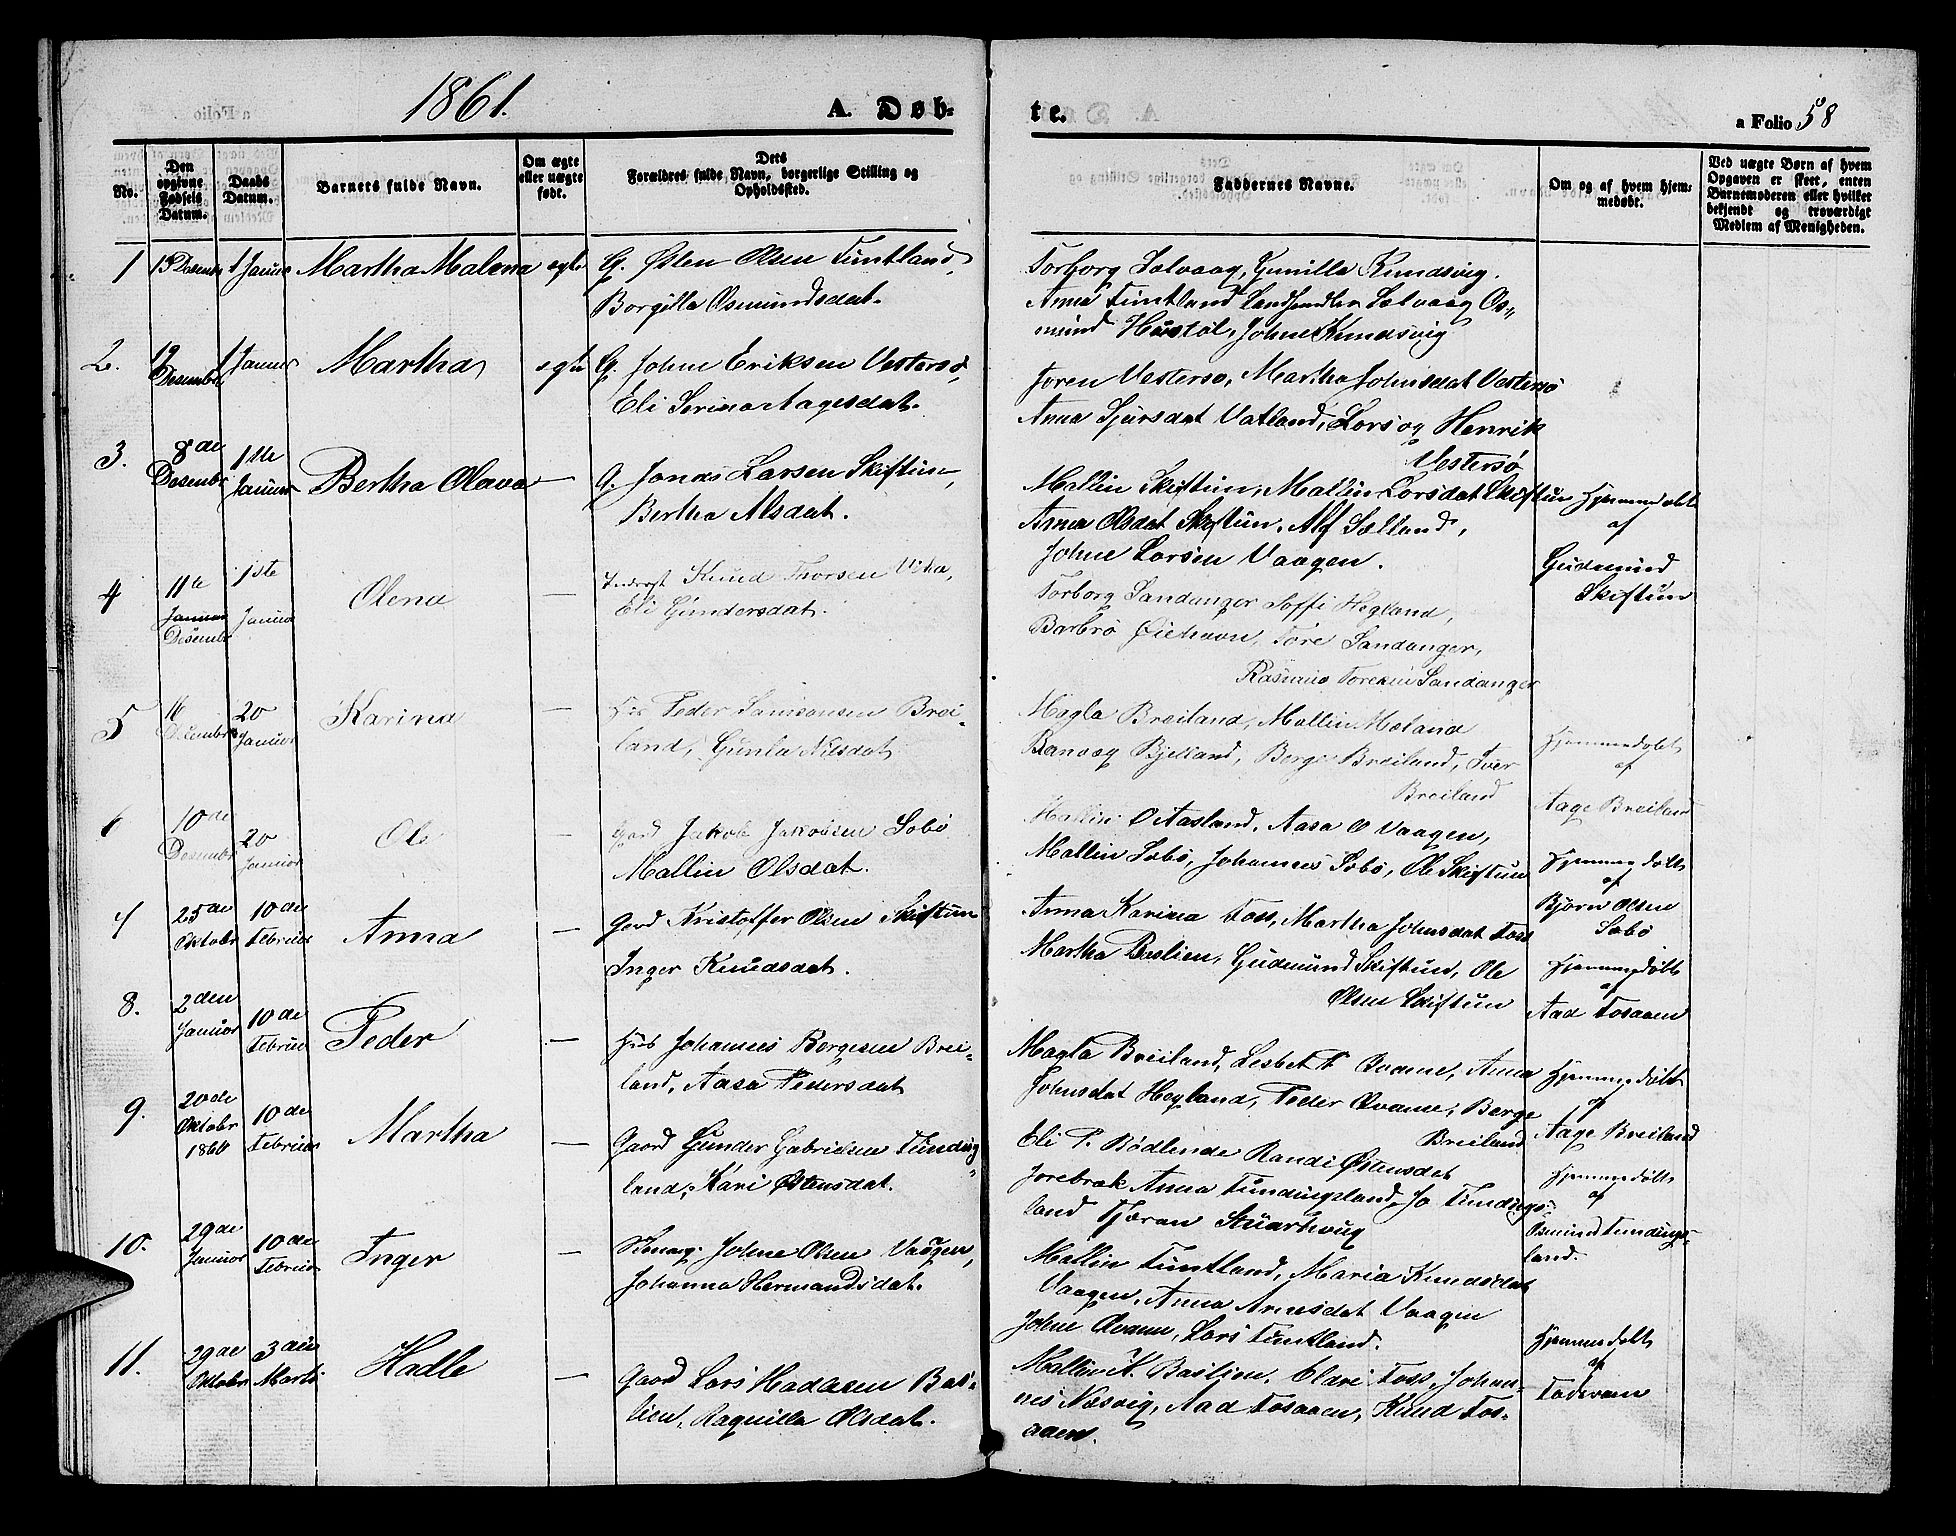 1861.
A. Døb-
te.
a Folio 58
No.
Den opgivne Fødsels Datum.
Daabs Datum.
Barnets fulde Navn.
Om ægte eller uægte født.
Dets Forældres fulde Navn, borgerlige Stilling og Opholdssted.
Faddernes Navne.
Om og af hvem hjemmedøbt.
Ved uægte Børn af hvem Opgaven er skeet, enten Barnemoderen eller hvilket bekjendt og troværdigt Medlem af Menigheden.
1 13 Desembr 1 Januar Martha Malena egte G. Østen Olsen Tuntland,
Borgilla Osmundsdat.
Torborg Sælvaag, Gunilla Knudsvig.
Anna Tuntland Landhandler Sælvaag Os„
mund Hustøl, Johne Knudsvig
2. 12 Desembr 1 Januar Martha egte G. Johne Eriksen Vestersø,
Eli Serina Aagesdat.
Joren Vestersø, Martha Johnsdat Vestersø
Anna Sjursdat Vatland, Lars og Henrik
Vestersø
3. 8de Desembr 1ste Januar Bertha Olava — G. Jonas Larsen Skiftun,
Bertha Alsdat.
Mallin Skiftun, Mallin Larsdat Skiftun
Anna Olsdat Skiftun, Alf Sælland,
Johne Larsen Vaagen.
Hjemmedøbt
af
Gudmund
Skiftun
4 11te Januar Desembr 1ste Januar Olena — Knud Thorsen Vika,
Eli Gundersdat.
Torborg Sandanger Soffi Hegland,
Barbro Øiehavn, Tore Sandanger,
Rasmus Toresen Sandanger
5 16 Desembr 20 Januar Karina — Hus Peder Samsonsen Brei-
land, Gunla Nilsdat
Magla Breiland, Mallin Mæland
Ranvaag Bjelland, Berge Breiland, Iver
Breiland
Hjemmedøbt
af
Aage Breiland
6 10de Desembr 20 Januar Ole — Gard Jakob Jakobsen Søbø
Mallin Olsdat.
Mallin O Aasland, Aasa O Vaagen,
Mallin Søbø, Johannes Søbø, Ole Skiftun
Hjemmedøbt
af
Bjørn Olsen
Søbø
7 25de Oktobr 10de Februar Anna — Gard Kristoffer Olsen Skiftun
Inger Knudsdat.
Anna Karina Foss, Martha Johnsdat Foss
Martha Baslien, Gudmund Skiftun, Ole
Olsen Skiftun
Hjemmedøbt
af
Aad Fosaaen
8. 2den Januar 10de Februar Peder — Hus Johannes Bergesen Brei-
land, Aasa Pedersdat
Magla Breiland, Lesbet P Qvame, Anna
Johnsdat Hegland, Peder Qvame, Berge
Breiland
Hjemmedøbt
af
Aage Breiland
9. 20de Oktobr 1860 10de Februar Martha — Gaard Gunder Gabrielsen Tundings
land, Kari Østensdat.
Eli P. Bødlende Randi Østensdat
Jorebrak Anna Tundingsland, Jo Tundings-
land Tjæran
Hjemmedøbt
af
Osmund Tundings-
land.
10. 29de Januar 10de Februar Inger — Johne Olsen Vaagen,
Johanna Hermandsdat.
Mallin Tuntland, Maria Knudsdat
Vaagen, Anna Arnesdat Vaagen
Johne Qvame, Lars Tuntland.
11. 29de Oktobr 3die Marts Hadle — Gaard Lars Hadlesen Bas-
lien, Raquilla Olsdat.
Mallin K. Baslien, Foss, Johan-
nes Næsvig, Aad Fosaaen, Knud Fos-
aaen.
Hjemmedøbt
af
Faderen